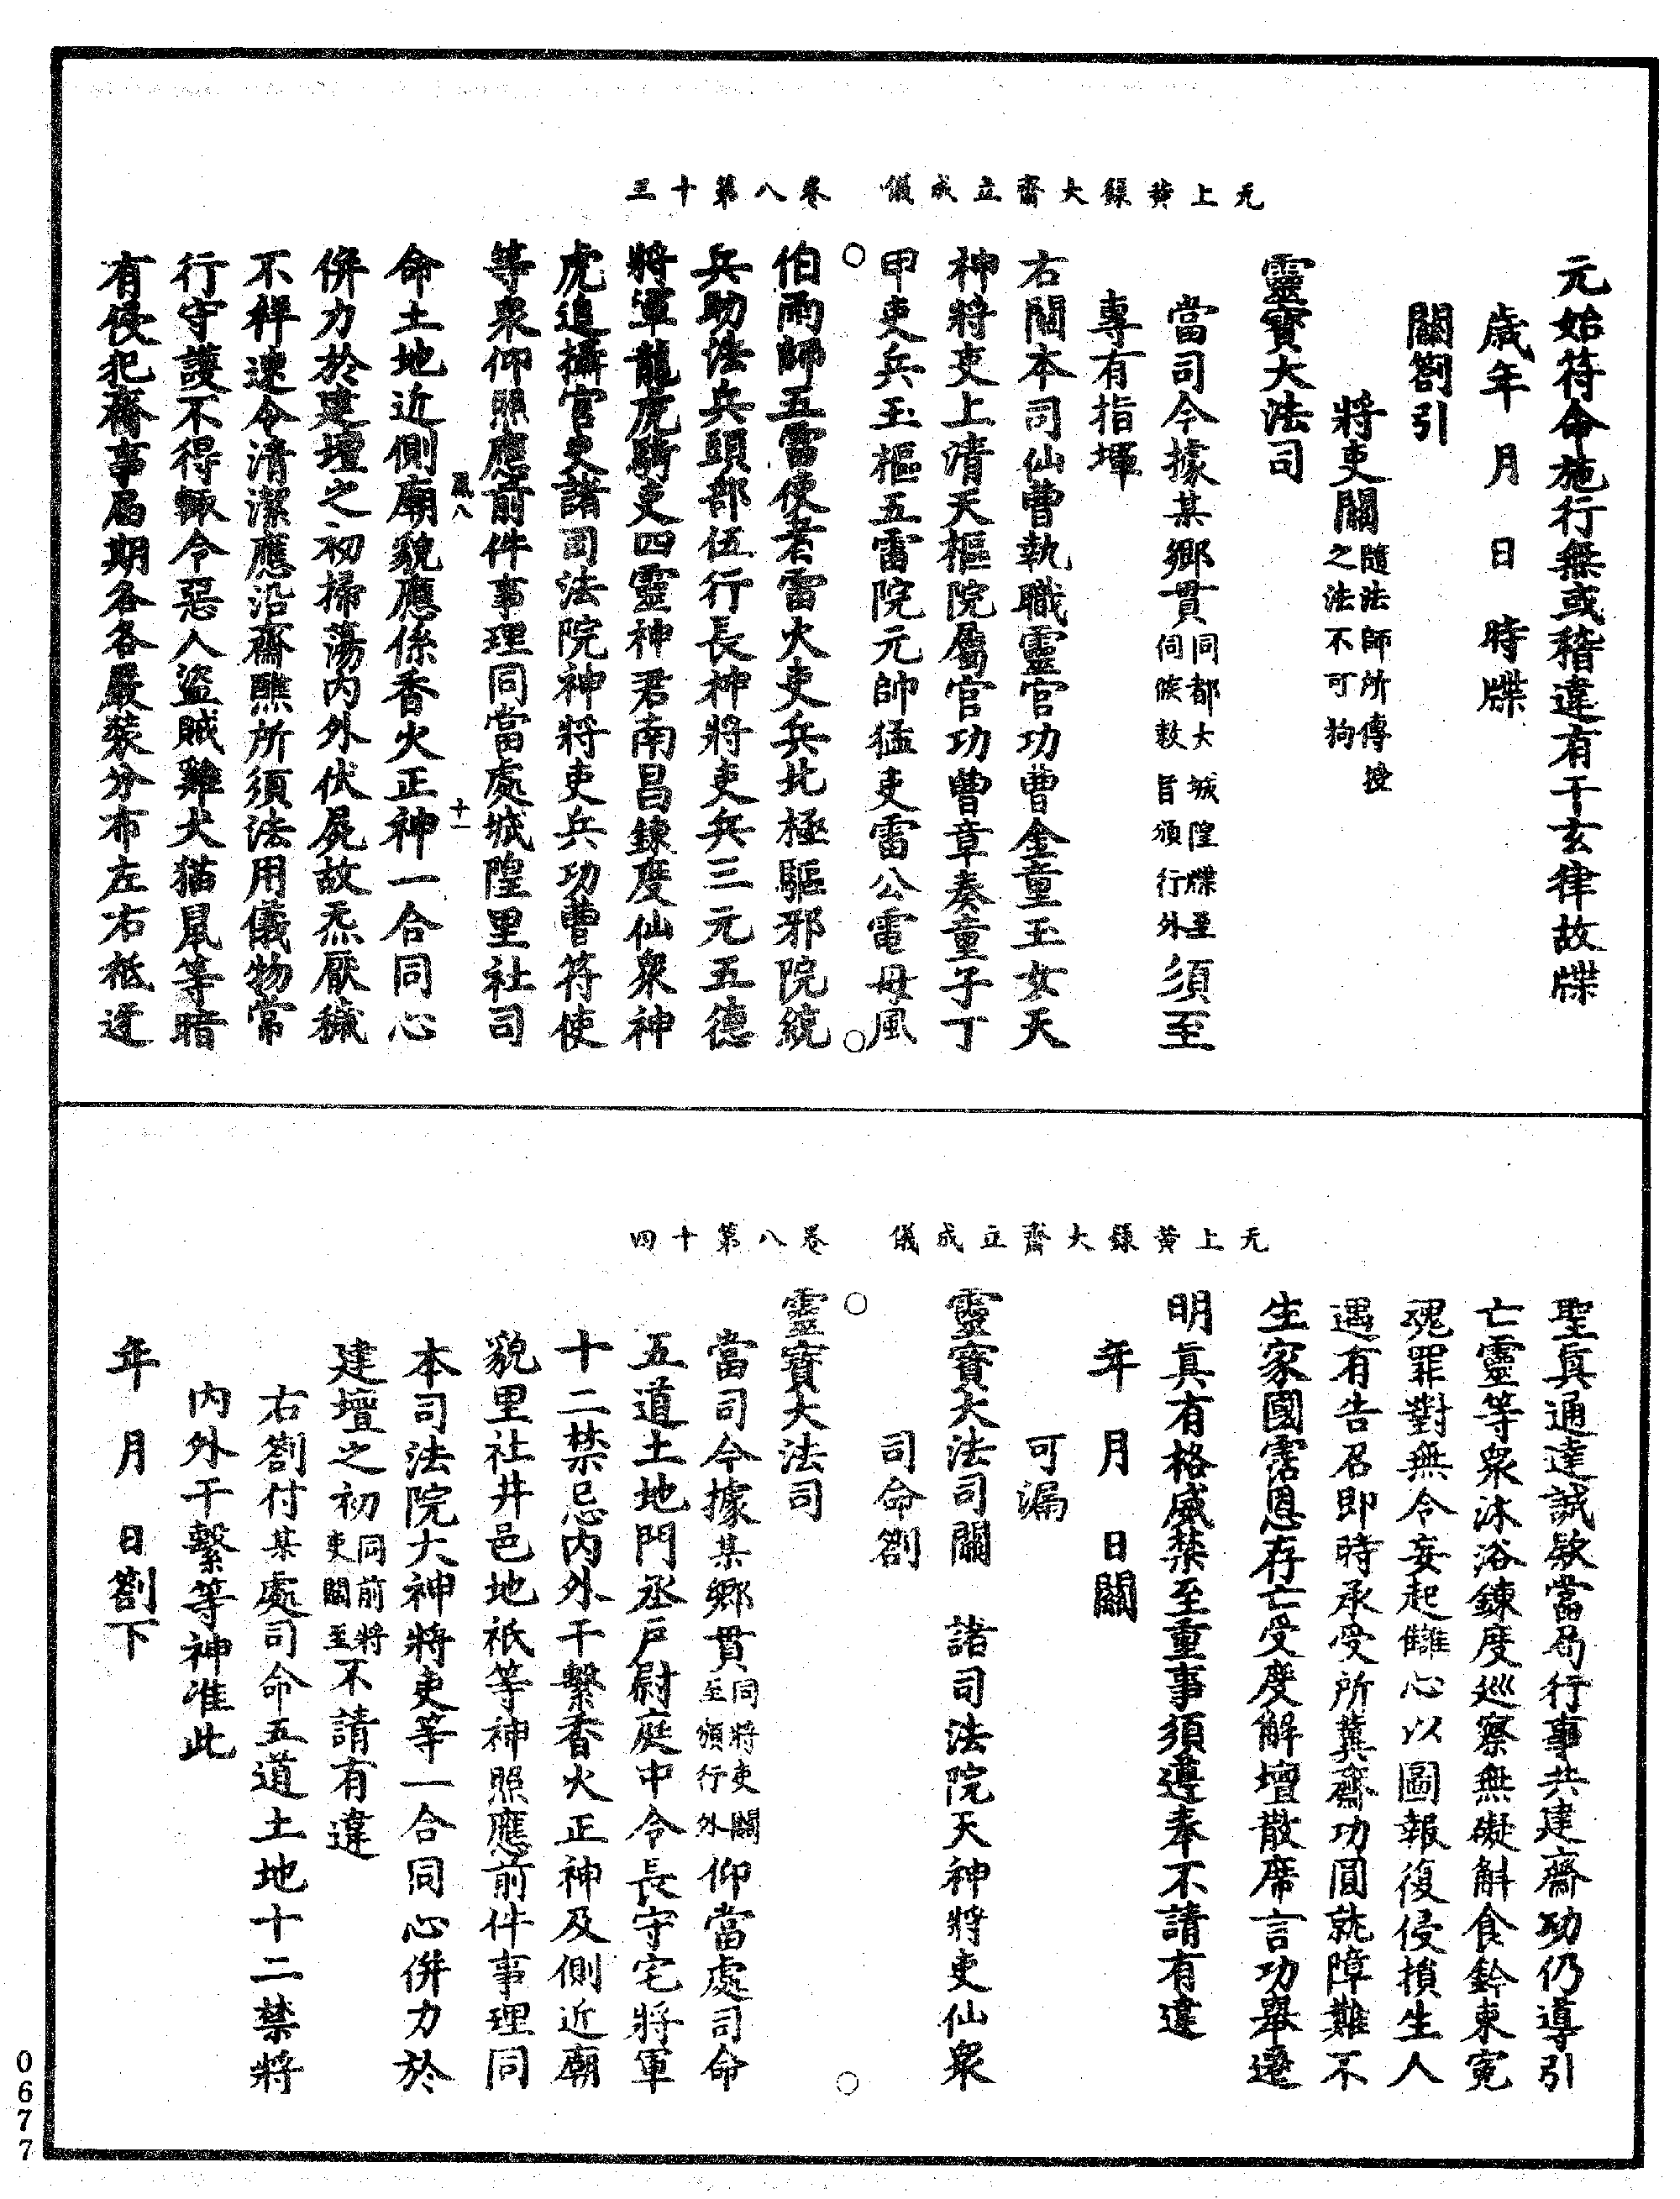 无上黃籙大齋立成儀　卷八第十三
元始符命施行無或稽違有干玄律故牒
歲年　月　日　時牒
關劄引
將吏關隨法師所傳授之法不可拘
靈寶大法司
當司今據某鄉貫同都大城隍牒至伺候敕旨頒行外須至
專有指揮
右關本司仙曹執職靈官功曹金童玉女天
神將吏上清天樞院屬官功曹章奏童子丁
甲吏兵玉樞五雷院元帥猛吏雷公電母風
伯雨師五雷使者雷火吏兵北極驅邪院統
兵助法兵頭部伍行長神將吏兵三元五德
將軍龍虎騎吏四靈神君南昌鍊度仙衆神
虎追攝官吏諸司法院神將吏兵功曹符使
等衆仰照應前件事理同當處城隍里社司
八　十一
命土地近側廟貌應係香火正神一合同心
併力於建壇之初掃蕩内外伏屍故炁厭穢
不祥速令清潔應沿齋醮所須法用儀物常
行守護不得輒令惡人盜賊雞犬猫鼠等暗
有侵犯齋事届期各各嚴裝分布左右祗迓
无上黃籙大齋立成儀　卷八第十四
聖真通達誠欵當局行事共建齋功仍導引
亡靈等衆沐浴鍊度巡察無礙斛食鈐束冤
魂罪對無令妄起讎心以圖報復侵損生人
遇有告召即時承受所冀齋功圓就障難不
生家國霑恩存亡受度解壇散席言功舉遷
明真有格威禁至重事須遵奉不請有違
年　月　日關
可漏
靈寶大法司關　諸司法院天神將吏仙衆
司命劄
靈寶大法司
當司今據某鄉貫同將吏關至頒行外仰當處司命
五道土地門丞戶尉庭中令長守宅將軍
十二禁忌内外干繫香火正神及側近廟
貌里社井邑地祇等神照應前件事理同
本司法院大神將吏等一合同心併力於
建壇之初同前將吏關至不請有違
右劄付某處司命五道土地十二禁將
内外干繫等神准此
年　月　日劄下
0677